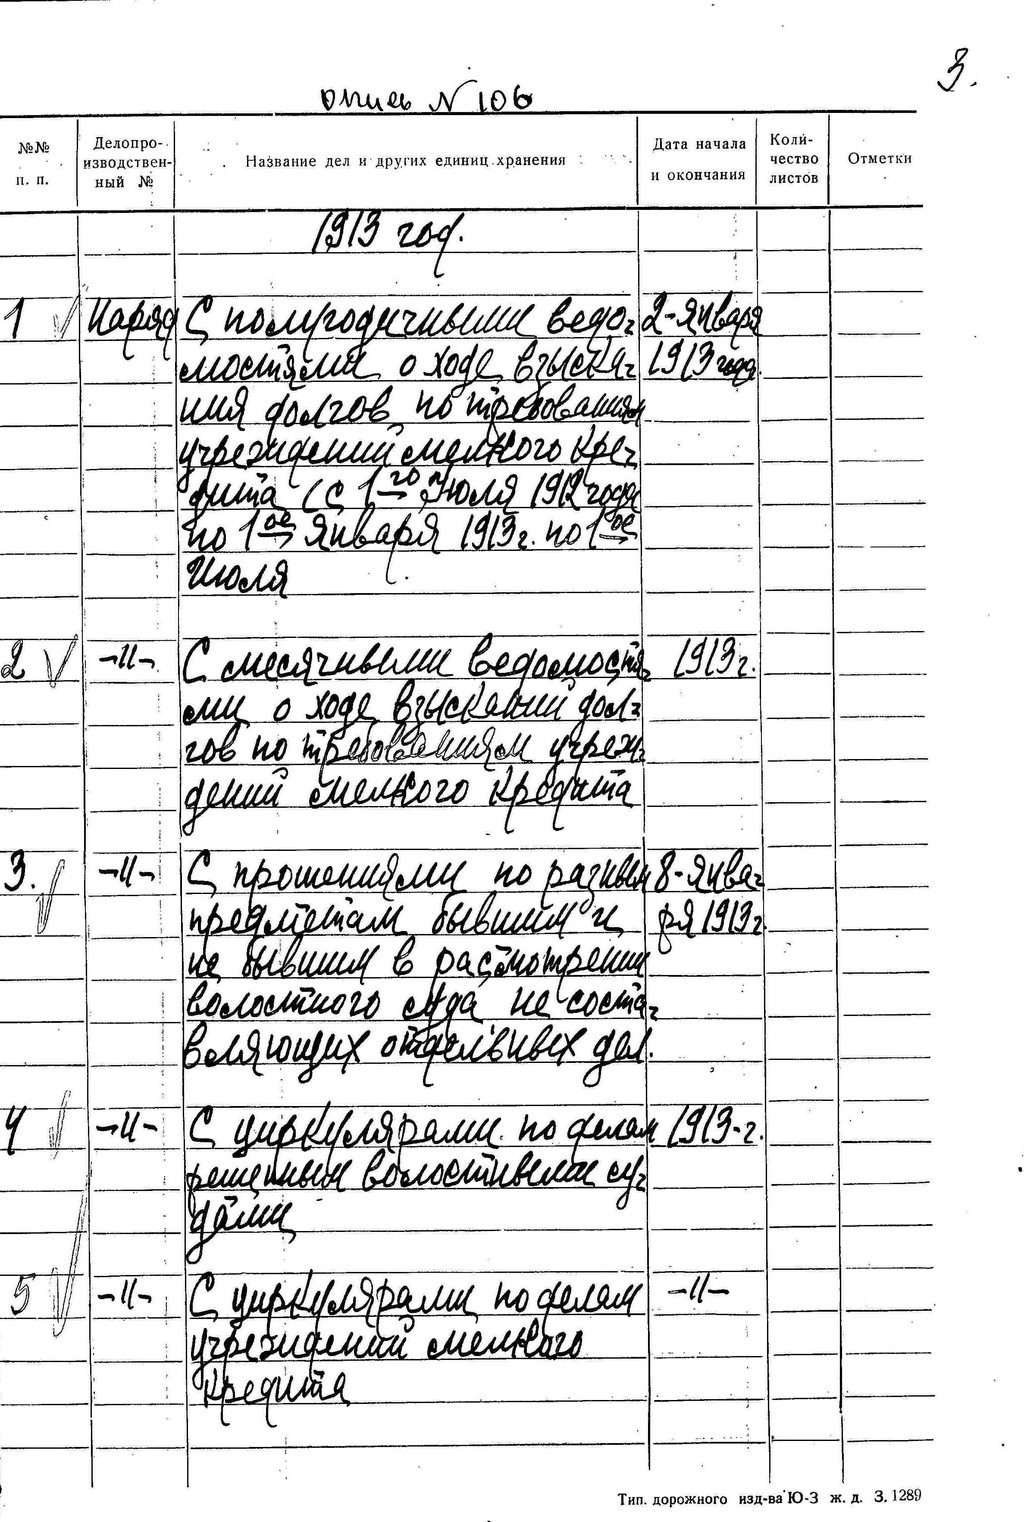 3.
Опись N 106
№№ п. п.
Делопро-изводствен-ный №
Название дел и других единиц хранения
Дата начала и окончания
Коли-чество листов
Отметки
1913 год.
1 Наряд С полугодичными ведо- 2-января
мостями о ходе взыска- 1913 года
ния долгов по требованиям
учреждений мелкого кре-
дита (с 1го Июля 1912 года
по 1ое Января 1913 г. по 1ое
Июля
2 -"- С месячными ведомостя- 1913 г.
ми о ходе взысканий дол-
гов по требованиям учреж-
дений мелкого кредита
3. -"- С прошениями по разным 8-янва-
предметам бывшим и ря 1913 г
не бывшим в расмотрении
волостного суда не соста-
вляющих отдельных дел.
4 -"- С циркулярами по делам 1913-г.
решенным волостными су-
дами
5 -"- С циркулярами по делам -"-
учреждений мелкого
кредита
Тип. дорожного изд-ва Ю-З ж. д. З. 1289